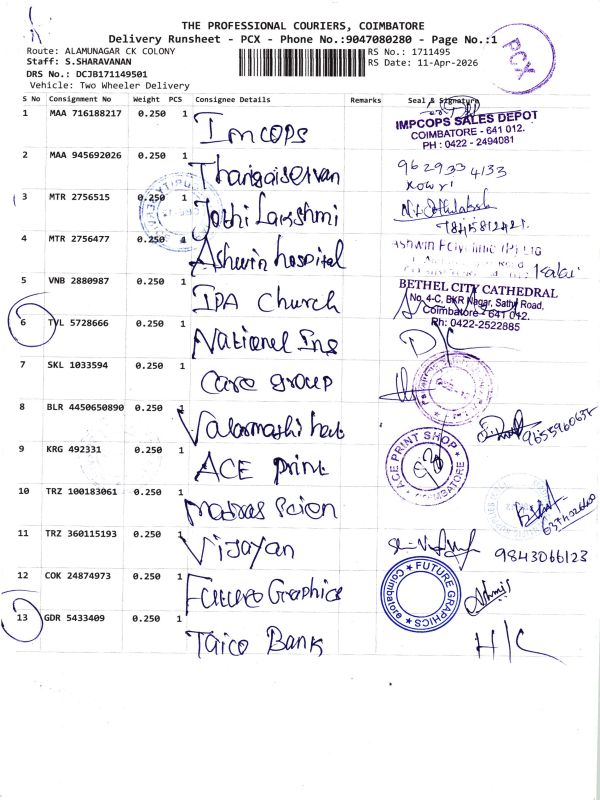 THE PROFESSIONAL COURIERS, COIMBATORE
Delivery Runsheet - PCX - Phone No.:9047080280 - Page No.:1
Route: ALAMUNAGAR CK COLONY
RS No.: 1711495
Staff: S.SHARAVANAN
RS Date: 11-Apr-2026
DRS No.: DCJB171149501
Vehicle: Two Wheeler Delivery
PCX
S No Consignment No Weight PCS Consignee Details Remarks Seal & Signature
1 MAA 716188217 0.250 1 Imcops
IMPCOPS SALES DEPOT
COIMBATORE - 641 012.
PH : 0422 - 2494081
2 MAA 945692026 0.250 1 Thangaiselvan
9629334133
3 MTR 2756515 0.250 1 Jothi Lakshmi
9845812421
4 MTR 2756477 0.250 1 Ashwin hospital
Kalai
5 VNB 2880987 0.250 1 IPA Church
BETHEL CITY CATHEDRAL
No. 4-C, BKR Nagar, Sathy Road,
Coimbatore - 641 012.
Ph: 0422-2522885
6 TVL 5728666 0.250 1 National Ins
D/C
7 SKL 1033594 0.250 1 Care group
8 BLR 4450650890 0.250 1 Valarmathi
9655960635
9 KRG 492331 0.250 1 ACE Print
ACE PRINT SHOP
COIMBATORE
10 TRZ 100183061 0.250 1 Madras Scien
11 TRZ 360115193 0.250 1 Vijayan
9843066123
12 COK 24874973 0.250 1 Future Graphics
FUTURE GRAPHICS
Coimbatore
13 GDR 5433409 0.250 1 Taico Bank
H/C